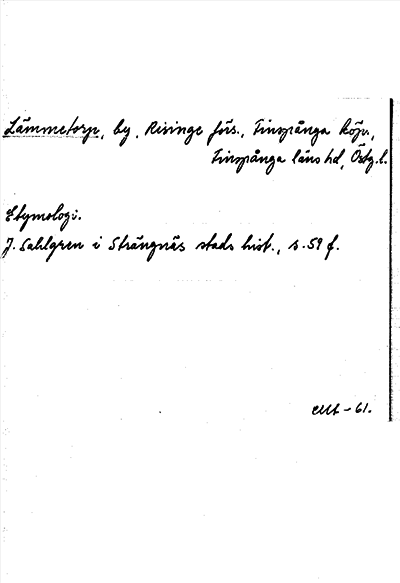 Lämmetorp, by, Risinge förs., Finspånga köp.,
Finspånga läns hd, Östg.l.
Etymologi.
J. Sahlgren i Strängnäs stads hist., s. 59 f.
-61.